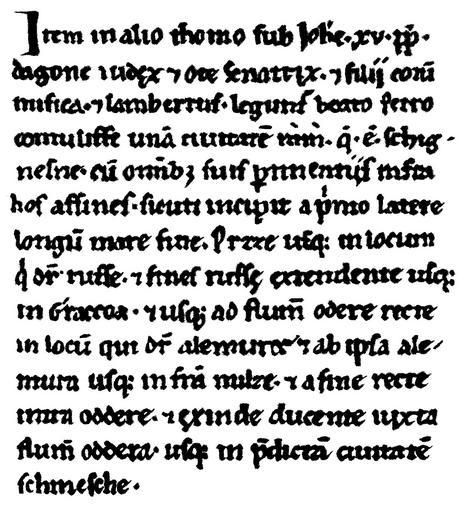 Item in alio thomo sub Joħe. xv. pp̄.
dagone iudęx ⁊ ote senatrix. ⁊ filij eorū
misica. ⁊ lambertus. leguns̄ beato petro
contulisse unā ciuitatē in īn. q̄. ē. schig-
nesne. cū omīb; suis ꝑtinentijs infra
hos affines. sicuti incipit a pͥmo latere
longū mare fine. Pruzze usq; in locum
qͥ dr̄ russe. ⁊ fines russę extendente usq;
in Graccoa. ⁊ usq; ad flum̄ odere recte
in locū qui dr̄ alemure. ⁊ ab ipsa ale-
mura usq; in frā milze. ⁊ a fine recte
intra oddere. ⁊ exinde ducente iuxta
flum̄ oddera. usq; in p̄dictā ciuitatē
schinesche.